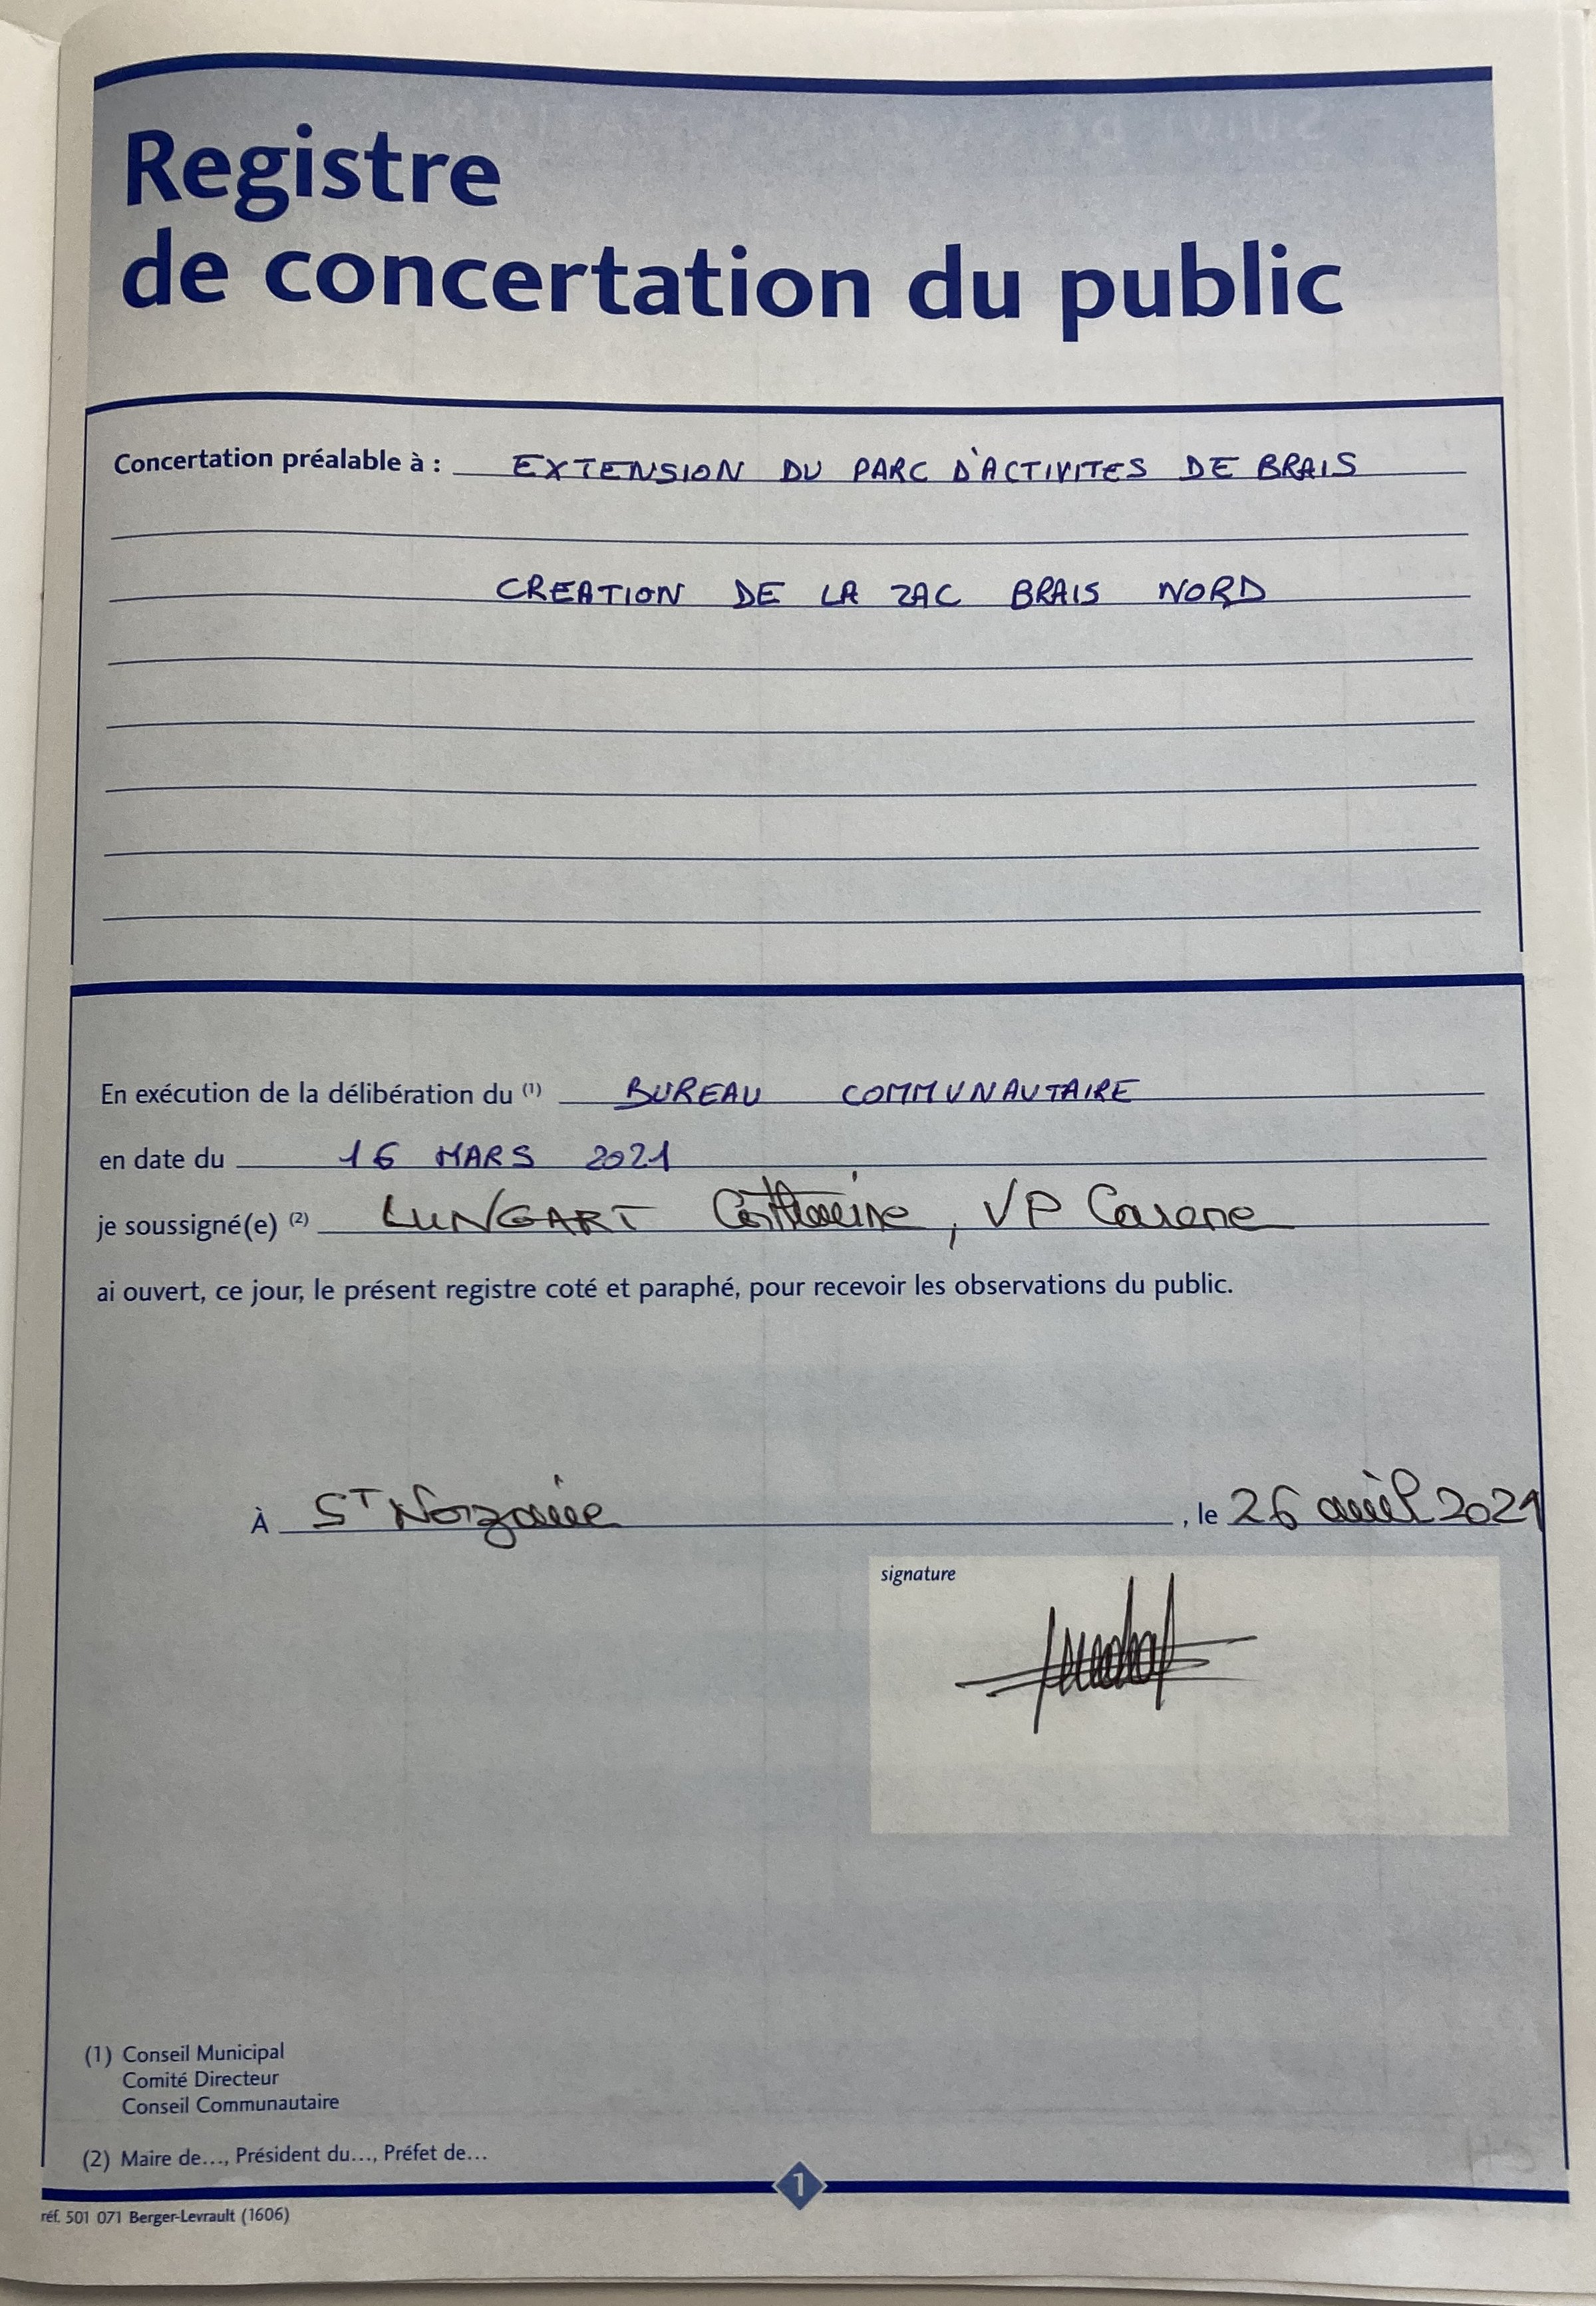 Registre
de concertation du public
Concertation préalable à : EXTENSION DU PARC D'ACTIVITES DE BRAIS
CREATION DE LA ZAC BRAIS NORD
En exécution de la délibération du (1) BUREAU COMMUNAUTAIRE
en date du 16 MARS 2021
je soussigné(e) (2) LUNGART Catherine, VP Carene
ai ouvert, ce jour, le présent registre coté et paraphé, pour recevoir les observations du public.
À ST Nazaire, le 26 avril 2021
signature
(1) Conseil Municipal
Comité Directeur
Conseil Communautaire
(2) Maire de..., Président du..., Préfet de...
1
réf. 501 071 Berger-Levrault (1606)